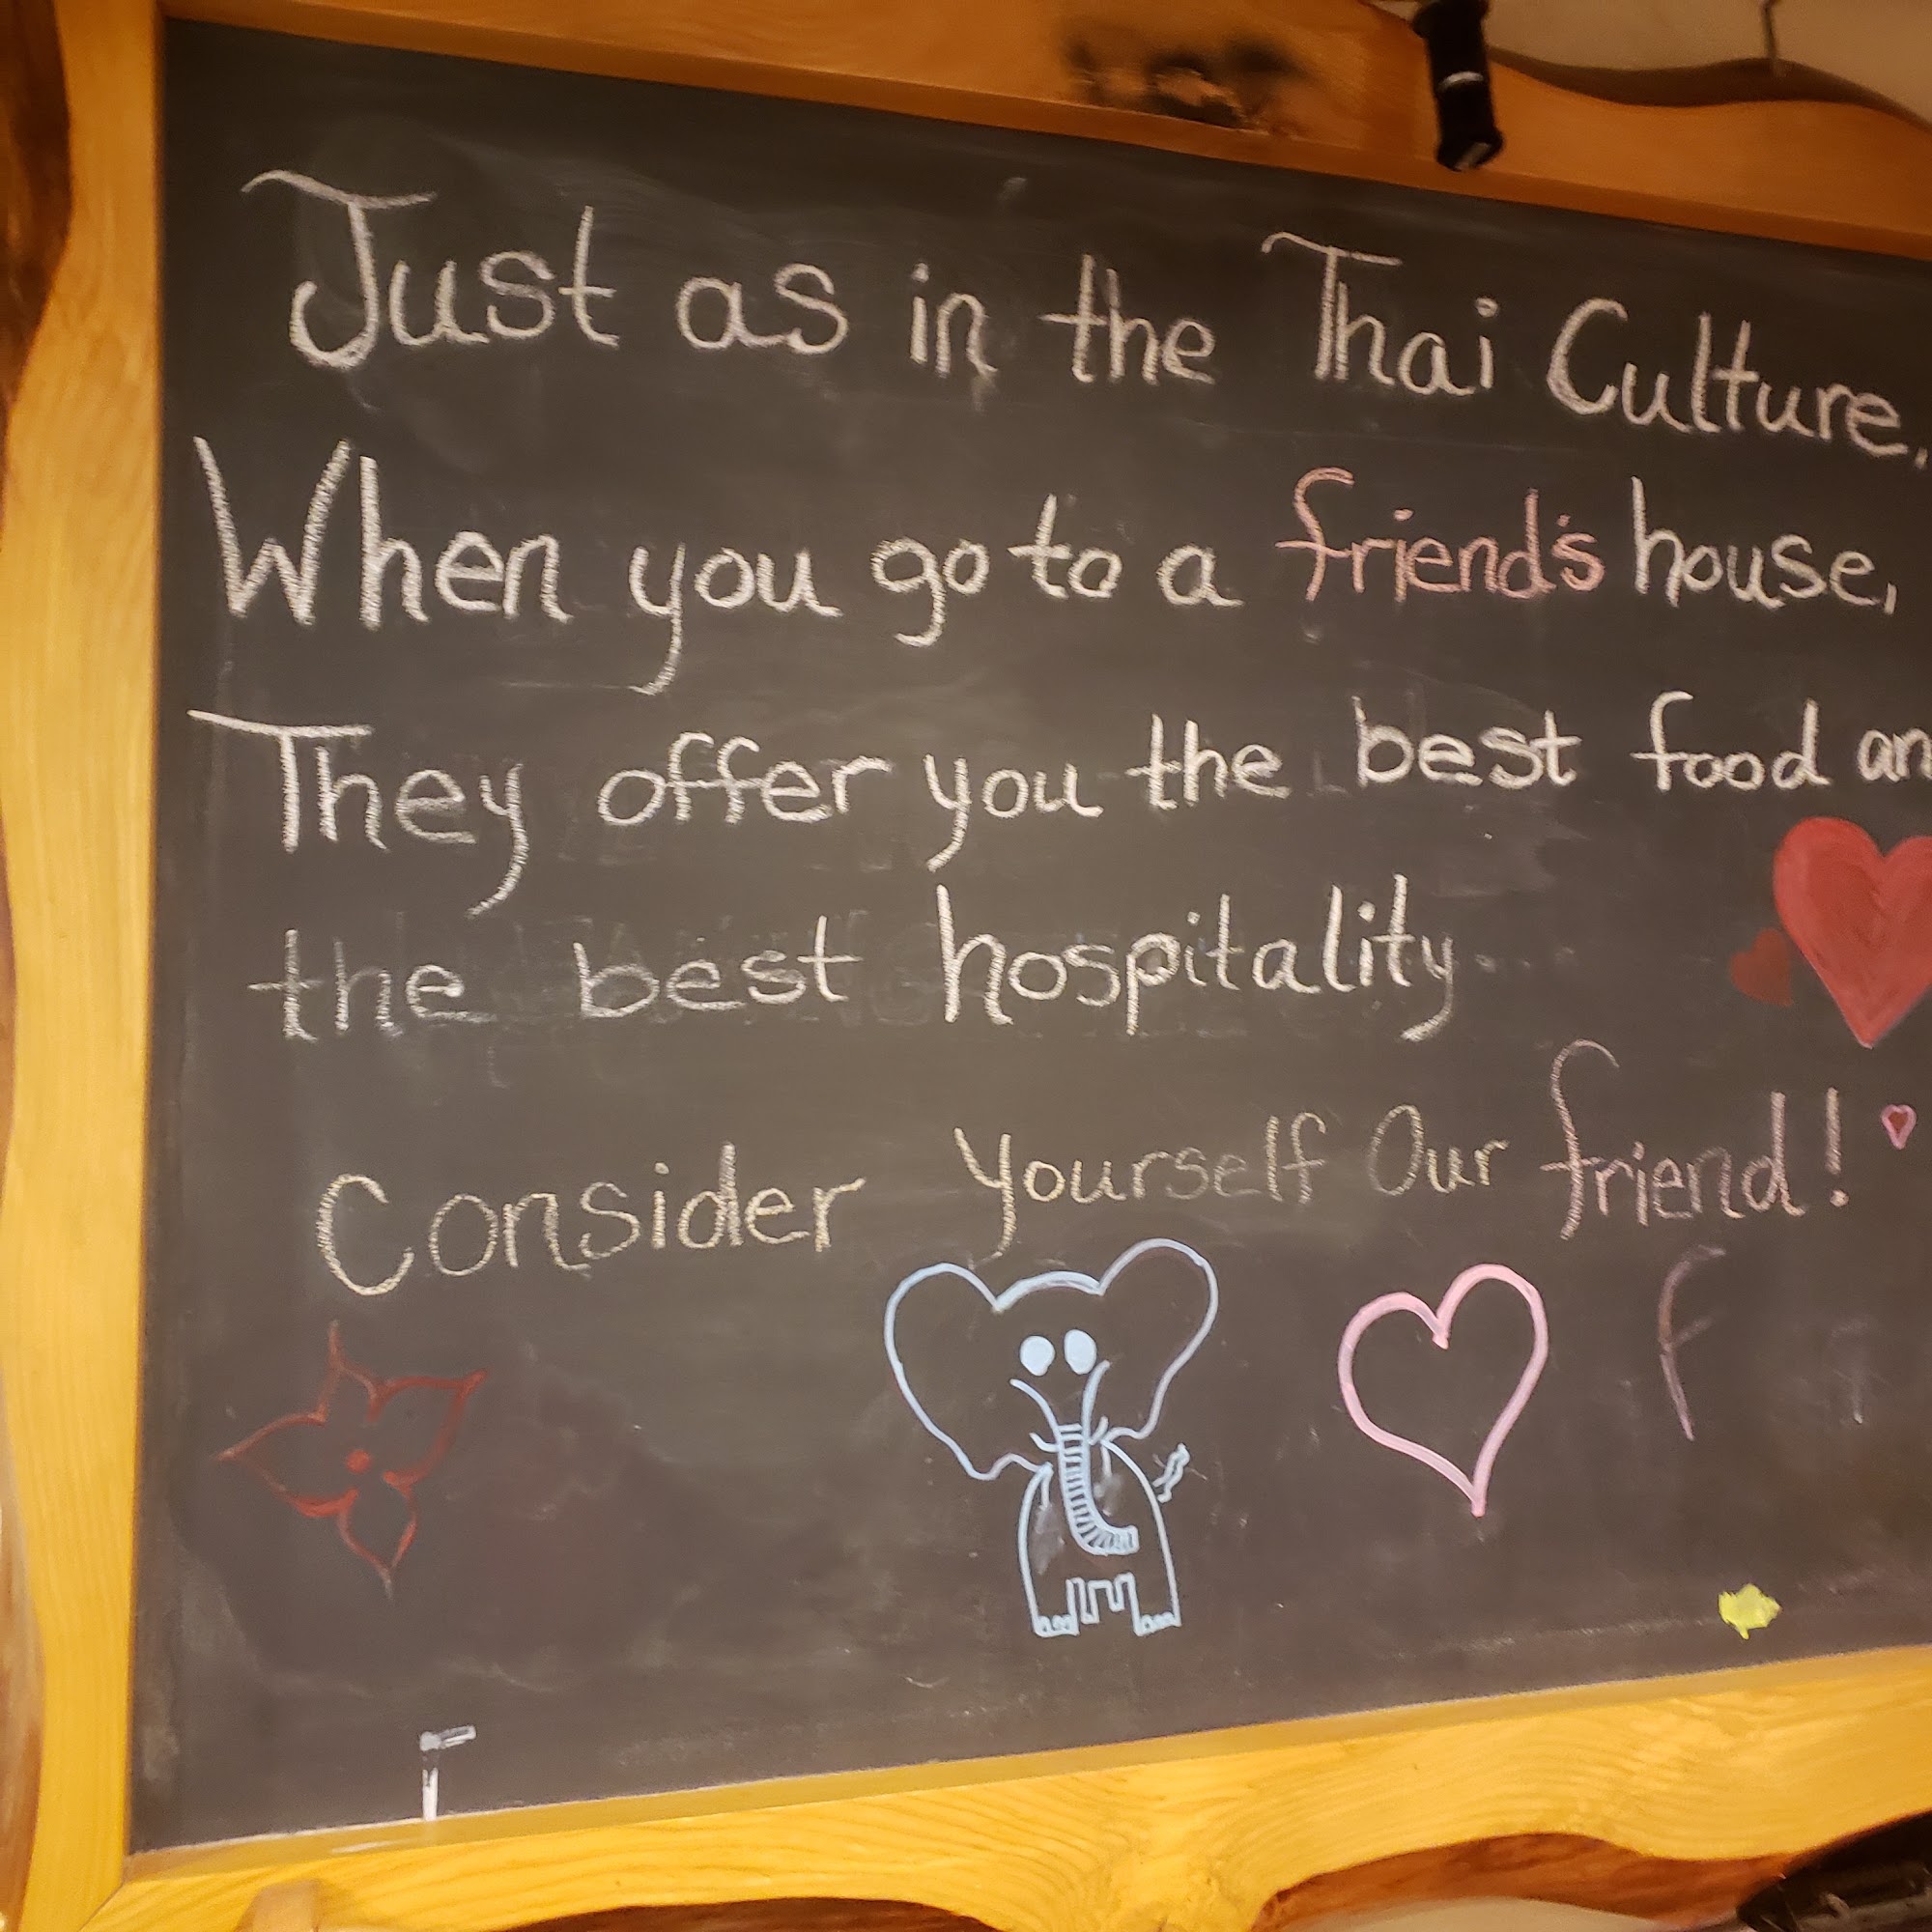 Just as in the Thai Culture,
When you go to a friend's house,
They offer you the best food an
the best hospitality...
Consider Yourself Our friend!
f